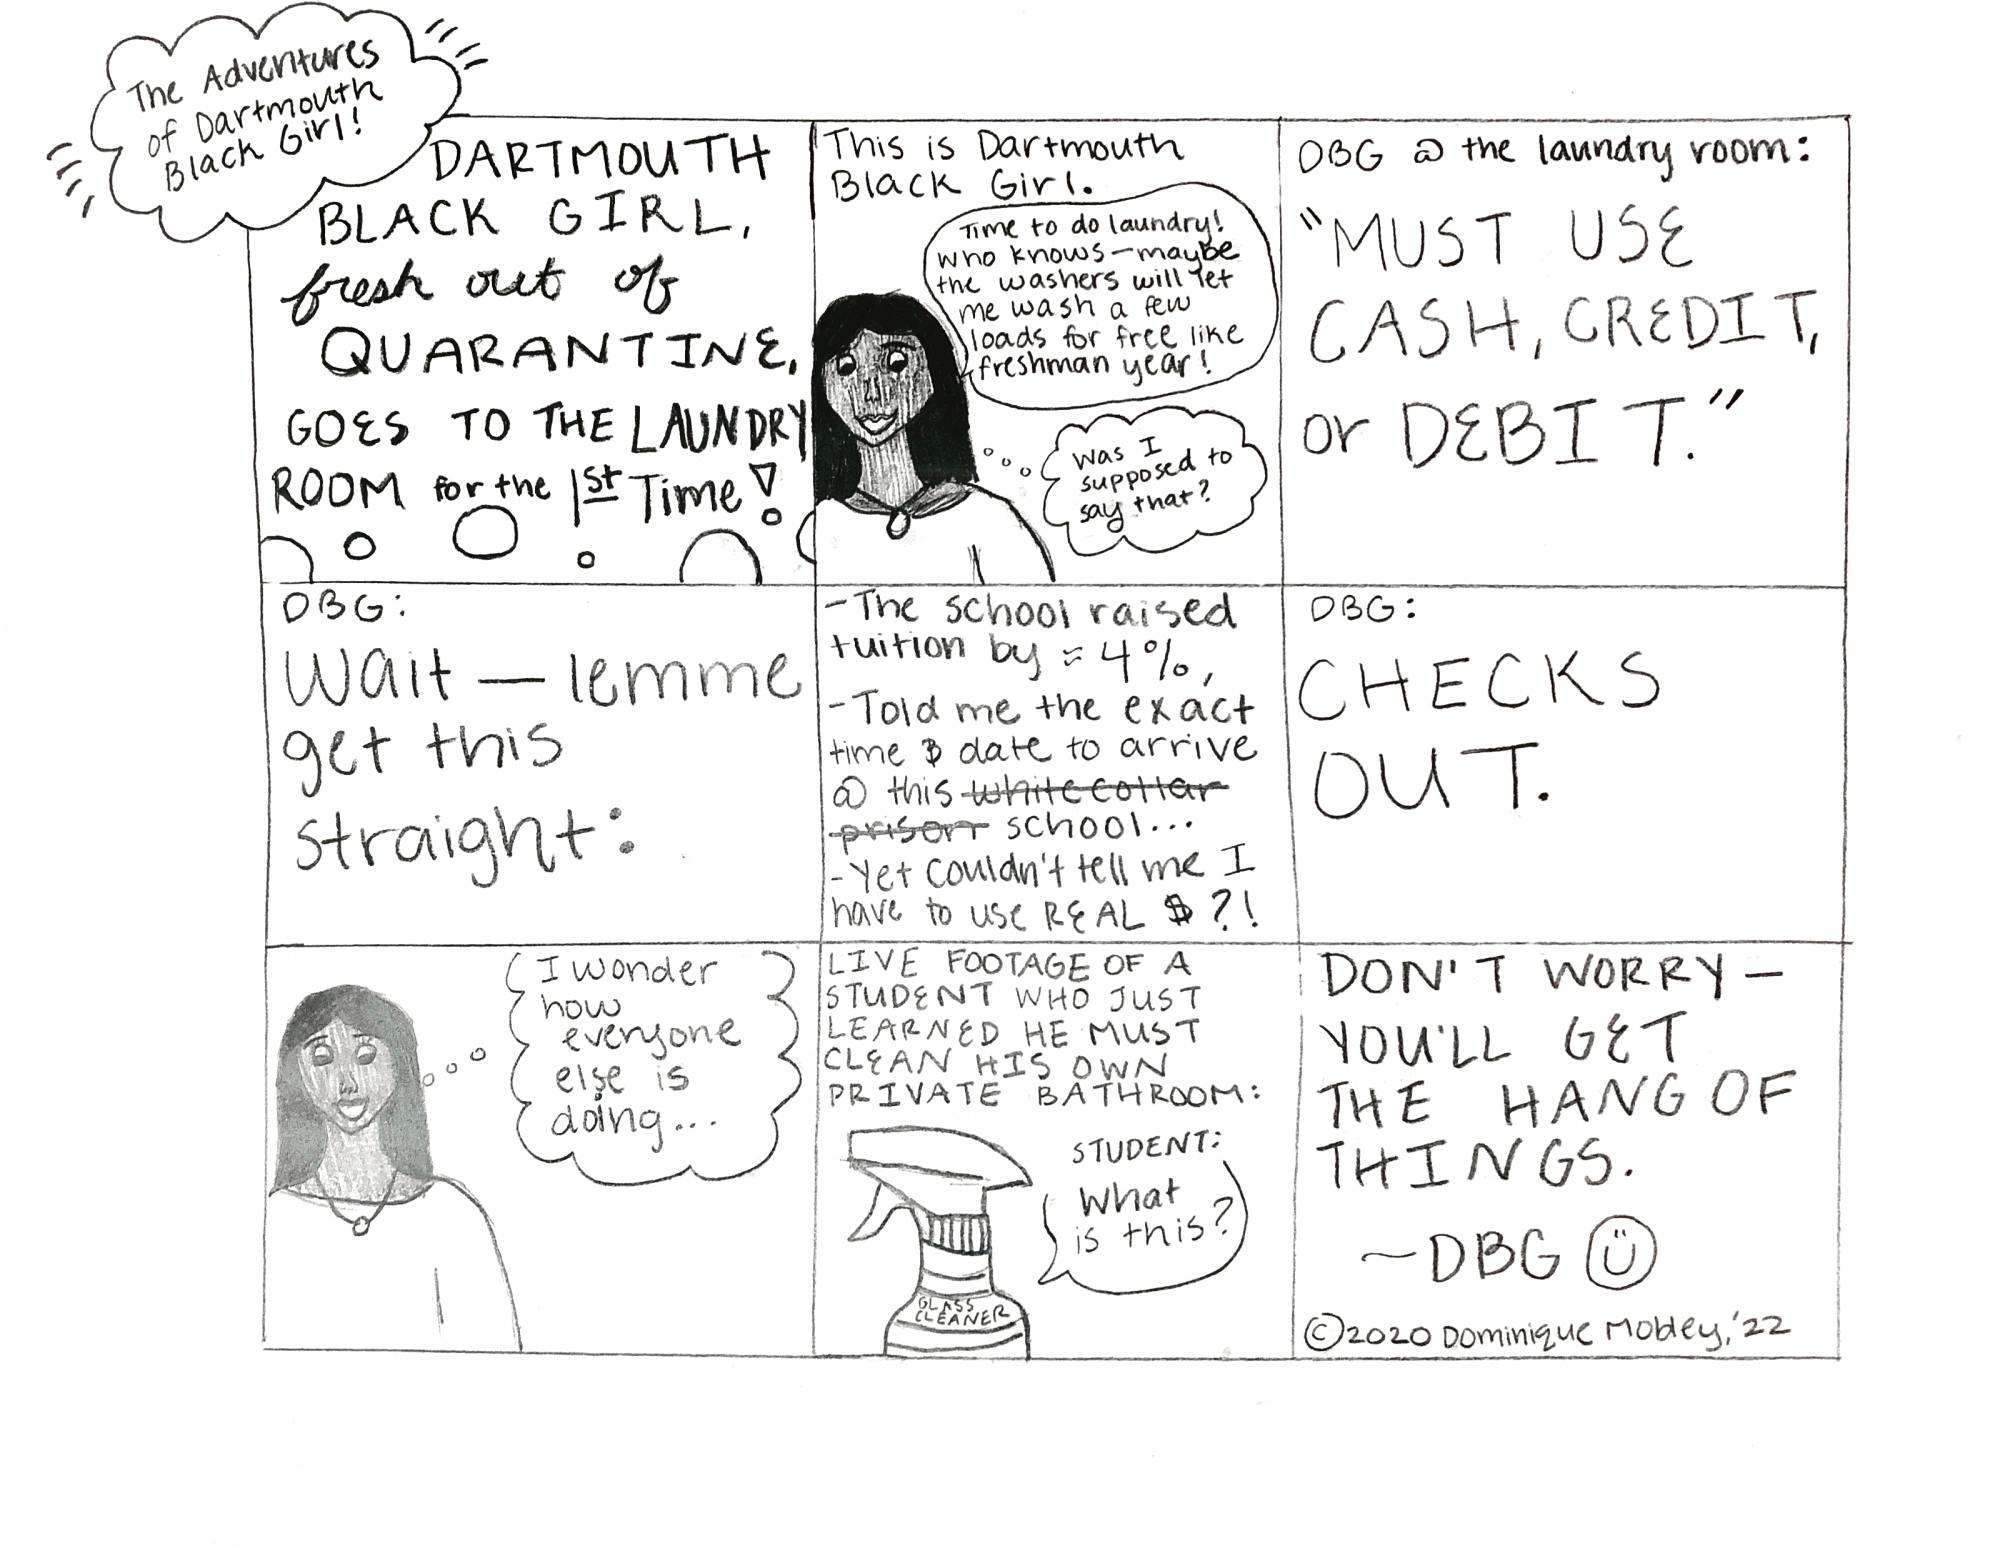 The Adventures
of Dartmouth
Black Girl!
DARTMOUTH
BLACK GIRL,
fresh out of
QUARANTINE,
GOES TO THE LAUNDRY
ROOM for the 1st Time!
This is Dartmouth
Black Girl.
Time to do laundry!
Who knows—maybe
the washers will let
me wash a few
loads for free like
freshman year!
Was I
supposed to
say that?
DBG @ the laundry room:
"MUST USE
CASH, CREDIT,
or DEBIT."
DBG:
Wait — lemme
get this
straight:
-The school raised
tuition by ≈ 4%,
-Told me the exact
time & date to arrive
@ this white collar
prison school...
-Yet couldn't tell me I
have to use REAL $?!
DBG:
CHECKS
OUT.
I wonder
how
everyone
else is
doing...
LIVE FOOTAGE OF A
STUDENT WHO JUST
LEARNED HE MUST
CLEAN HIS OWN
PRIVATE BATHROOM:
STUDENT:
What
is this?
GLASS
CLEANER
DON'T WORRY —
YOU'LL GET
THE HANG OF
THINGS.
~DBG
©2020 Dominique Mobley,'22